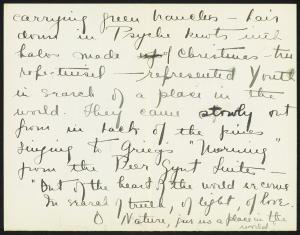 carrying green branches – hair
down in Psyche knots with
halos made of Christmas-tree
represented Youth
in search of a place in the
world. They came slowly out
from in back of the pines
singing to Griegs "Morning"
from the Peer Gynt Suite –
"Out of the heart of the world we come
In search of truth, of light, of love.
O Nature, give us a place in the
world"